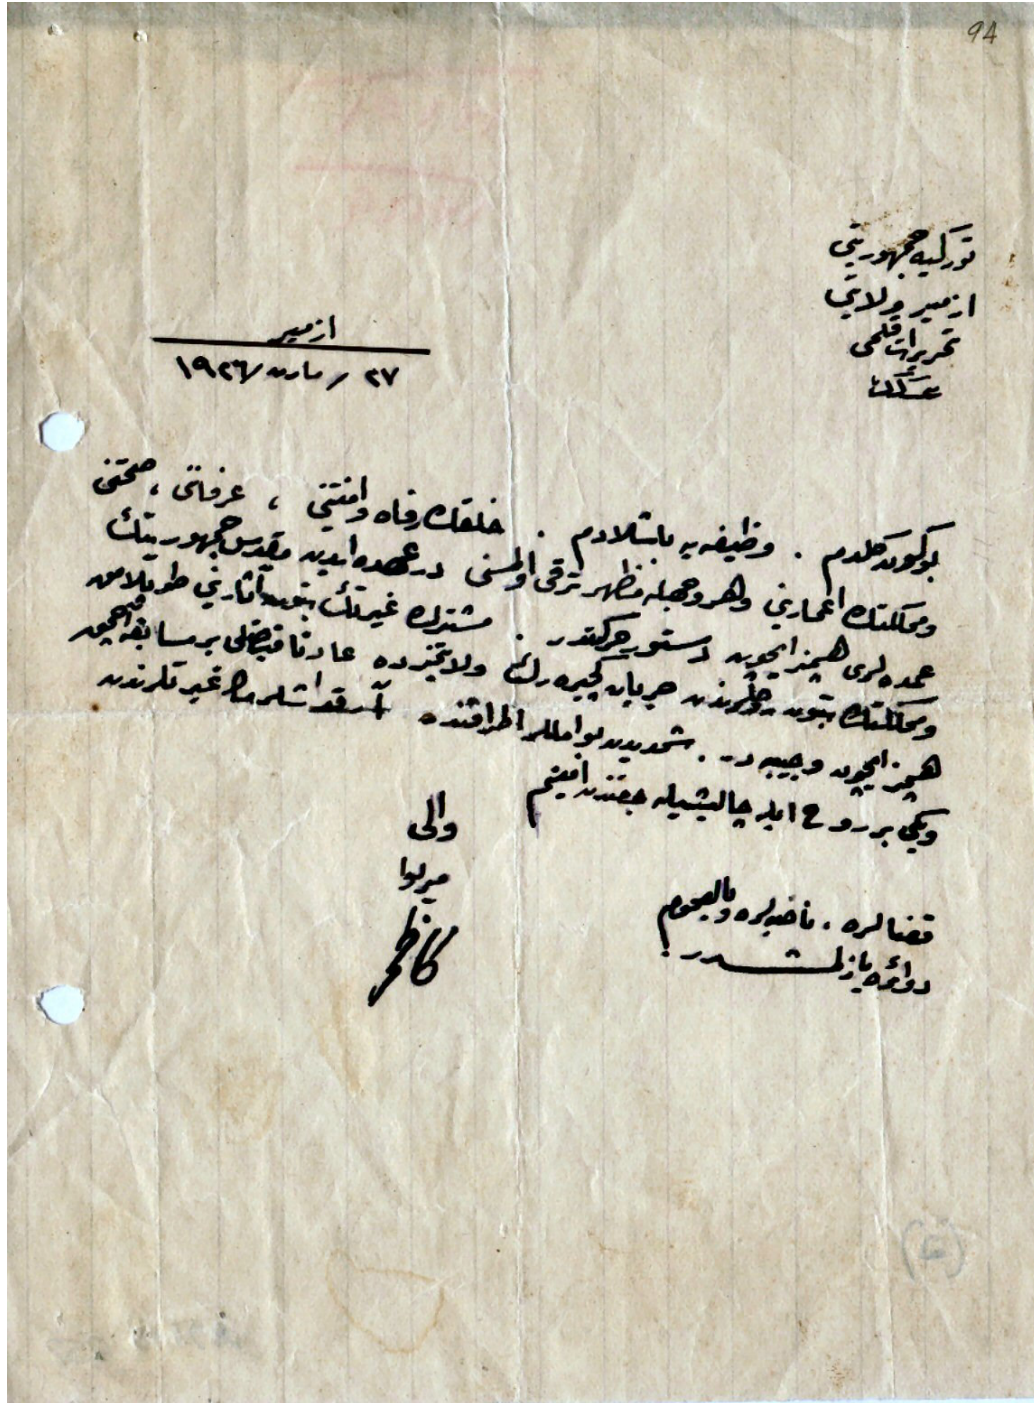 94
توركیه جمهوریتی
ازمیر ولایتی
تحریرات قلمی
ازمیر
٢٧ / مارت / ١٩٢٦
بوكون كلدم . وظیفه‌یه باشلادم . خلقك رفاه وامنیتنی ، عرفاننی ، صحتنی
ومملكتك اعمارینی وهر وجهله مظهر ترقی اولمسنی درعهده ایدن مقدس جمهوریتك
عمده‌لری هپمز ایچون دستور حركتدر . مشترك غیرتك بتون آثارینی طوپلامق
ومملكتك بتون جریان ولایتمزده عادتا بر مسابقه
هپمز ایچون وجیبه‌در . شمدیدن بو امللر اطرافنده آرقداشلرمك غیرتلرندن
ویكی بر روح ایله چالیشیله‌جغندن امینم
والی
میرلوا
كاظم
قضالره . ناحیه‌لره وبالعموم
دوائره یازلمشدر .